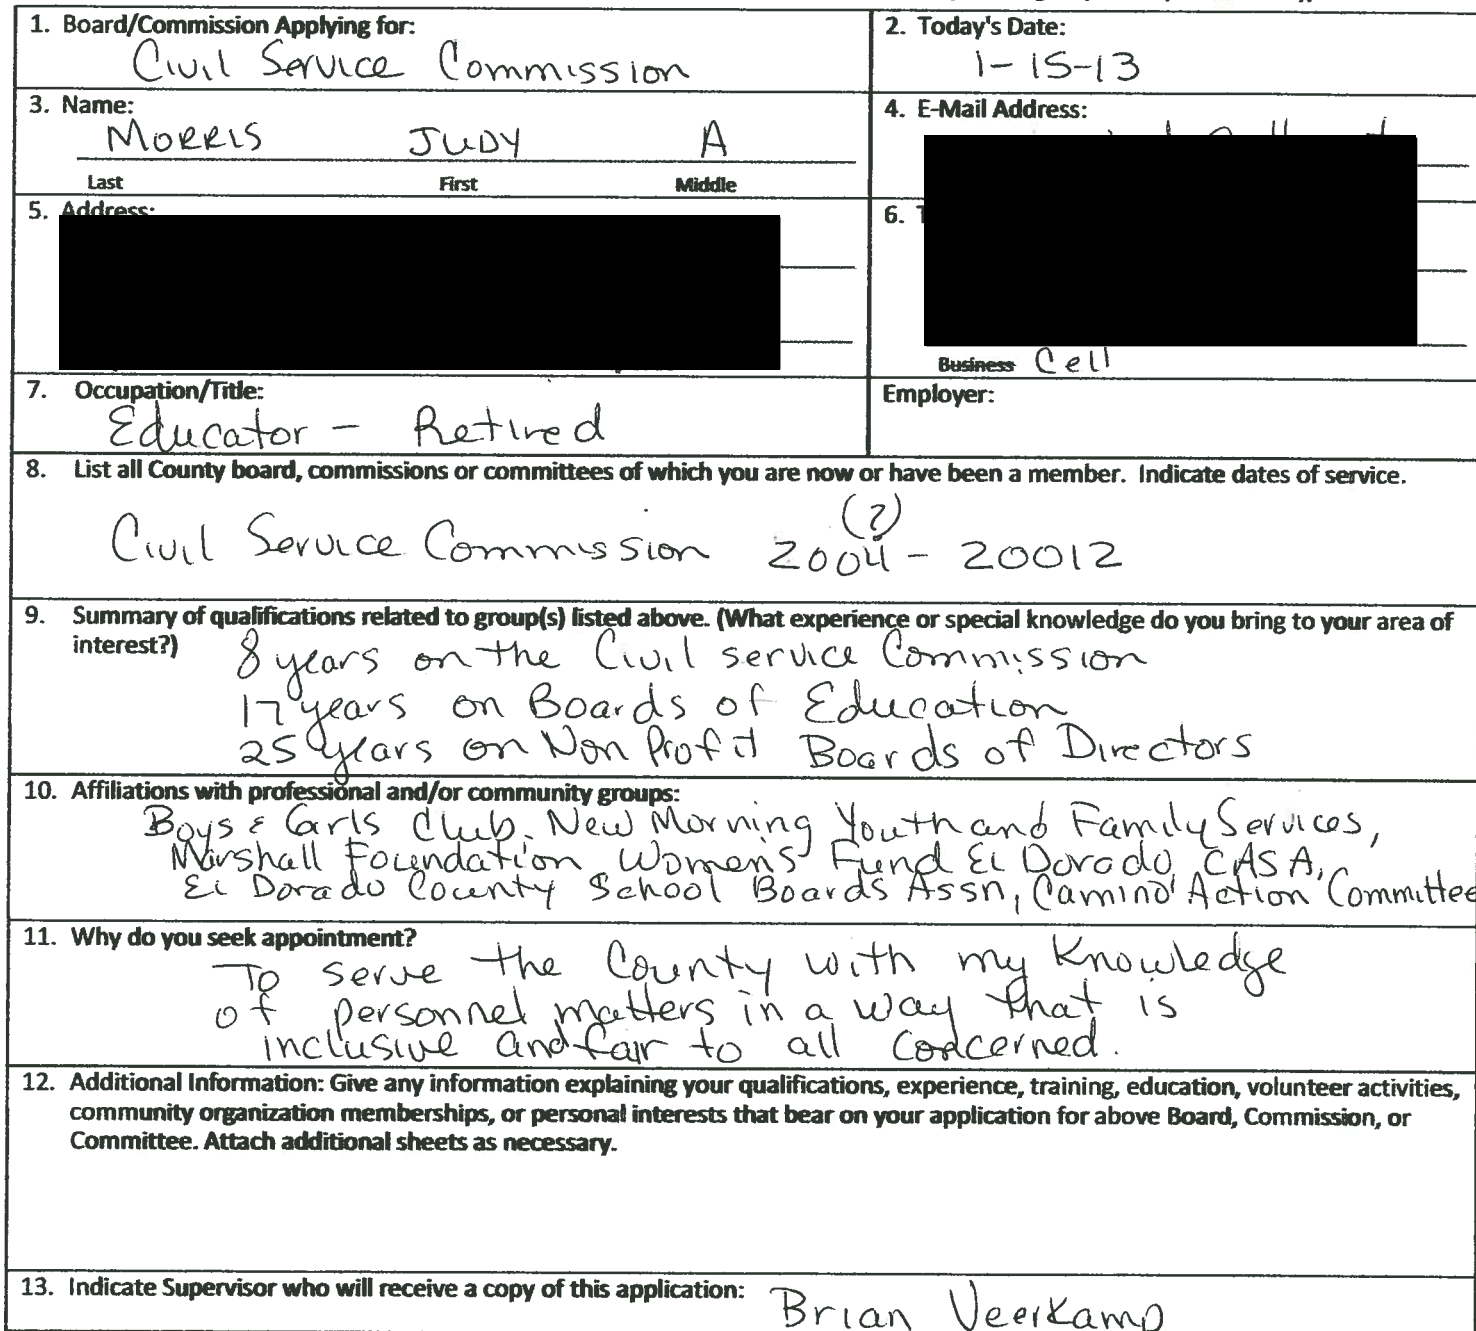 1. Board/Commission Applying for:
Civil Service Commission
2. Today's Date:
1-15-13
3. Name:
MORRIS JUDY A
Last First Middle
4. E-Mail Address:
5. Address:
6.
Business Cell
7. Occupation/Title:
Educator - Retired
Employer:
8. List all County board, commissions or committees of which you are now or have been a member. Indicate dates of service.
(?)
Civil Service Commission 2004 - 20012
9. Summary of qualifications related to group(s) listed above. (What experience or special knowledge do you bring to your area of
interest?)
8 years on the Civil service Commission
17 years on Boards of Education
25 years on Non Profit Boards of Directors
10. Affiliations with professional and/or community groups:
Boys & Garls Club. New Morning Youth and Family Services,
Marshall Foundation Womens Fund El Dorado, CASA,
El Dorado County School Boards Assn, Camino Action Committee
11. Why do you seek appointment?
To serve the County with my Knowledge
of personnel matters in a way that is
inclusive and fair to all concerned.
12. Additional Information: Give any information explaining your qualifications, experience, training, education, volunteer activities,
community organization memberships, or personal interests that bear on your application for above Board, Commission, or
Committee. Attach additional sheets as necessary.
13. Indicate Supervisor who will receive a copy of this application:
Brian Veerkamp